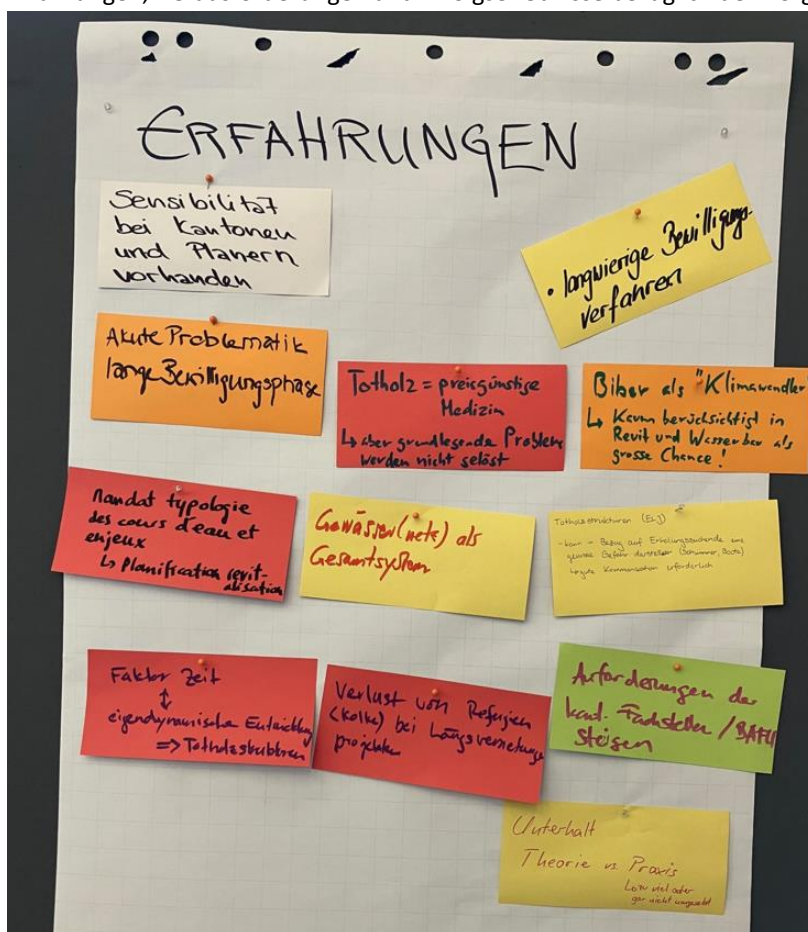 ERFAHRUNGEN
Sensibilität
bei Kantonen
und Planern
vorhanden
• langwierige Bewilligungs-
verfahren
Akute Problematik
lange Bewilligungsphase
Totholz = preisgünstige
Medizin
↳ aber grundlegende Probleme
werden nicht gelöst
Biber als "Klimawandler"
↳ Kaum berücksichtigt in
Revit und Wasserbau als
grosse Chance!
Mandat typologie
des cours d'eau et
enjeux
↳ Planification revit-
alisation
Gewässer(netz) als
Gesamtsystem
Totholzstrukturen (ELJ)
- kann in Bezug auf Erholungssuchende eine
gewisse Gefahr darstellen (Schwimmer, Boote)
↳ gute Kommunikation erforderlich
Faktor Zeit
↕
eigendynamische Entwicklung
=> Totholzstrukturen
Verlust von Refugien
(Kolke) bei Längsvernetzungs-
projekten
Anforderungen der
kant. Fachstellen / BAFU
steigen
Unterhalt
Theorie vs. Praxis
↳ zu viel oder
gar nicht umgesetzt